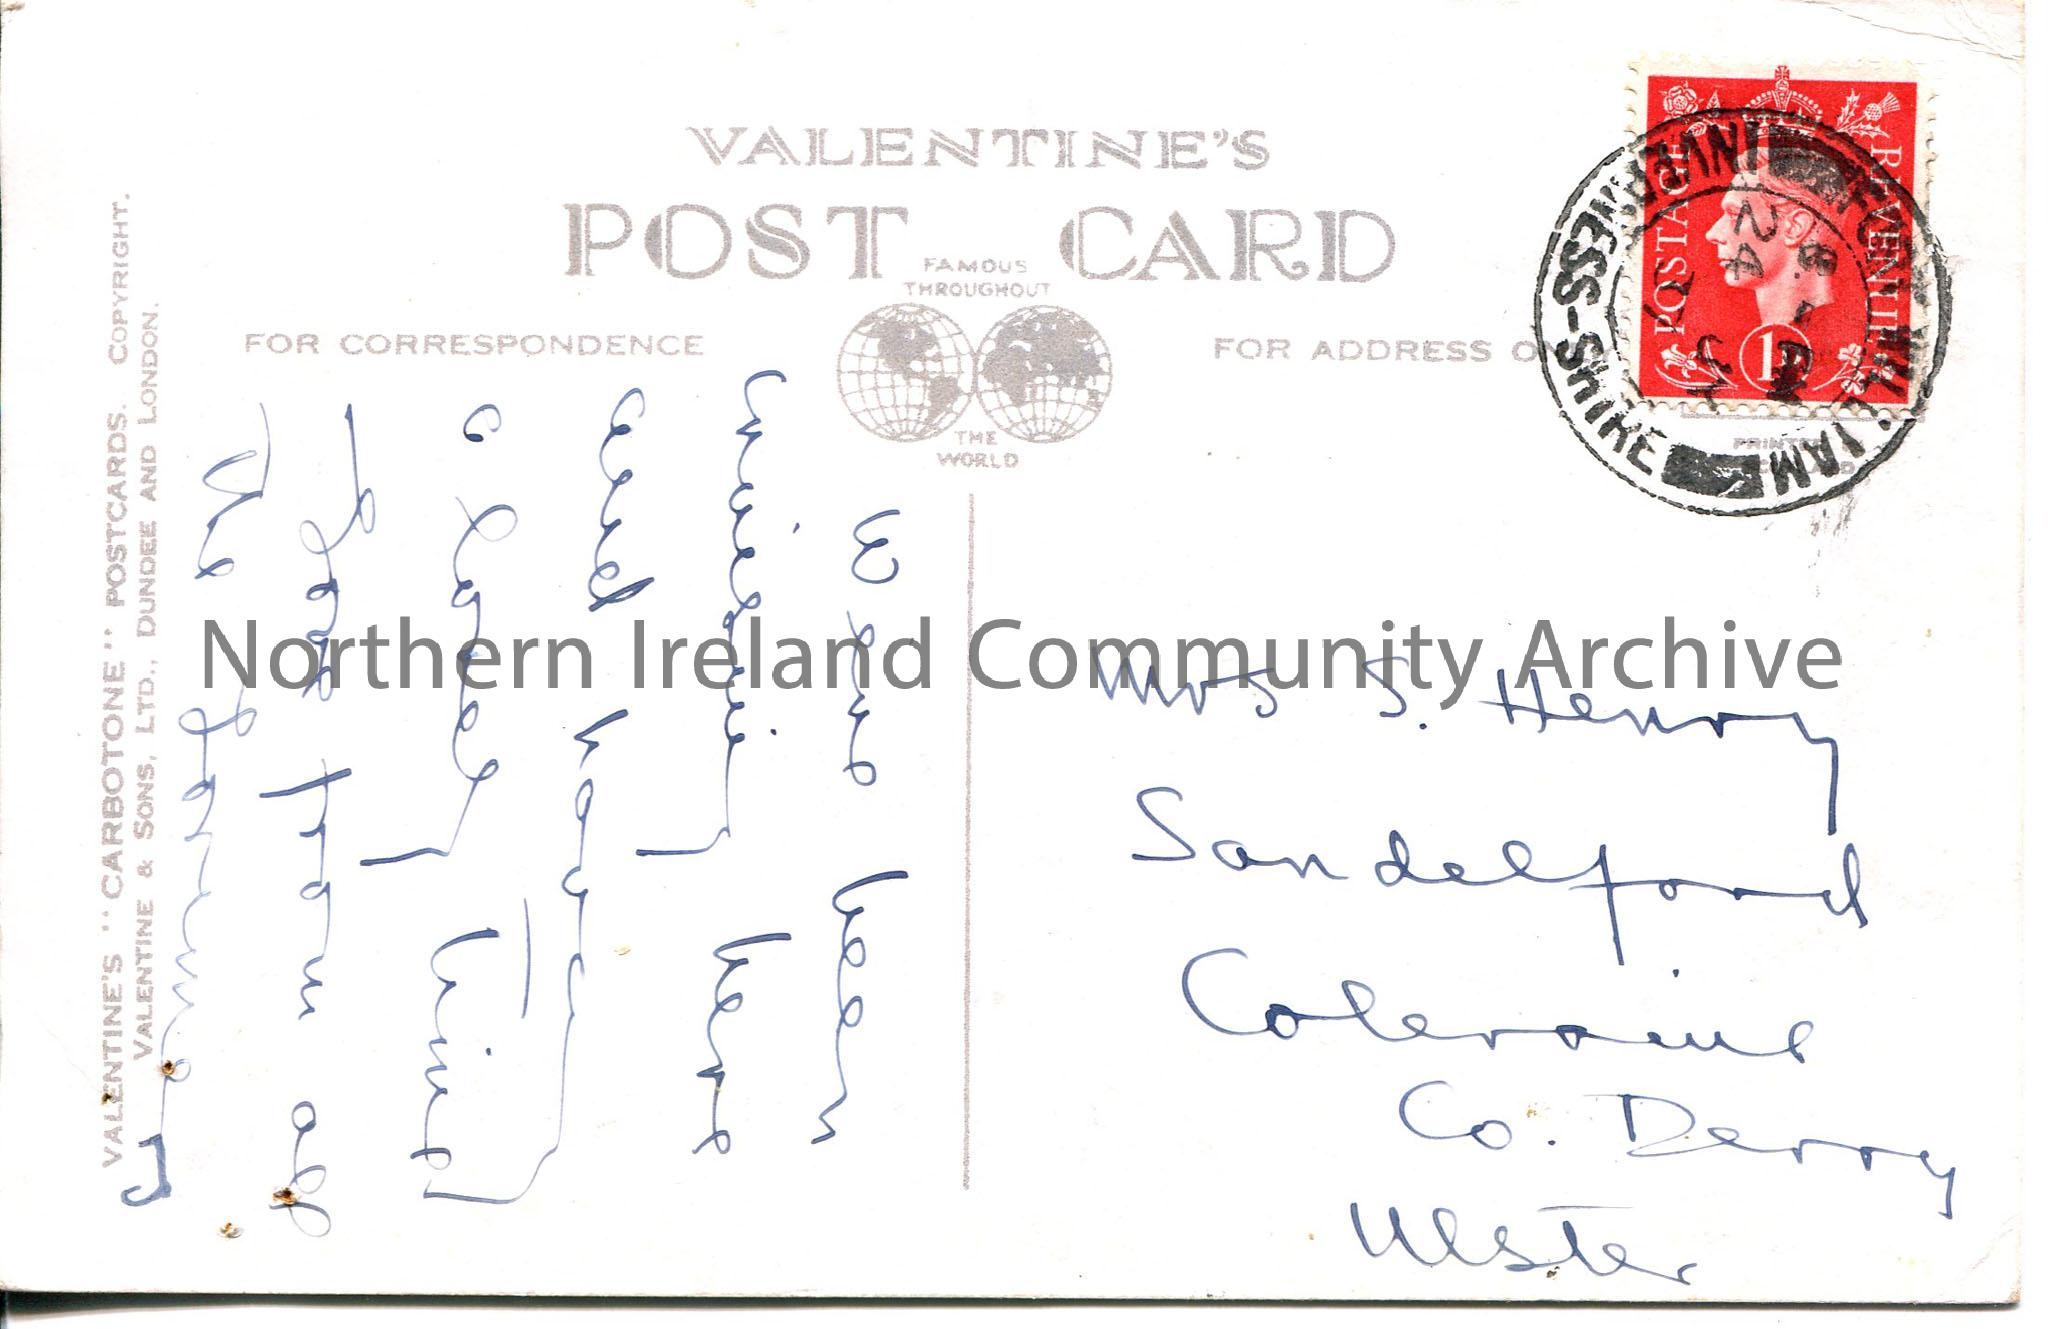 VALENTINE'S
POST CARD
FAMOUS
THROUGHOUT
THE
WORLD
FOR CORRESPONDENCE
FOR ADDRESS
VALENTINE'S "CARBOTONE" POSTCARDS. COPYRIGHT.
VALENTINE & SONS, LTD., DUNDEE AND LONDON.
POSTAGE
REVENUE
1D
FORT WILLIAM
INVERNESS-SHIRE
24
PRINTED
Weve been
here
and having
a lovely time
Love from all
The
Mrs S. Henry
Sandelford
Coleraine
Co. Derry
Ulster
Northern Ireland Community Archive